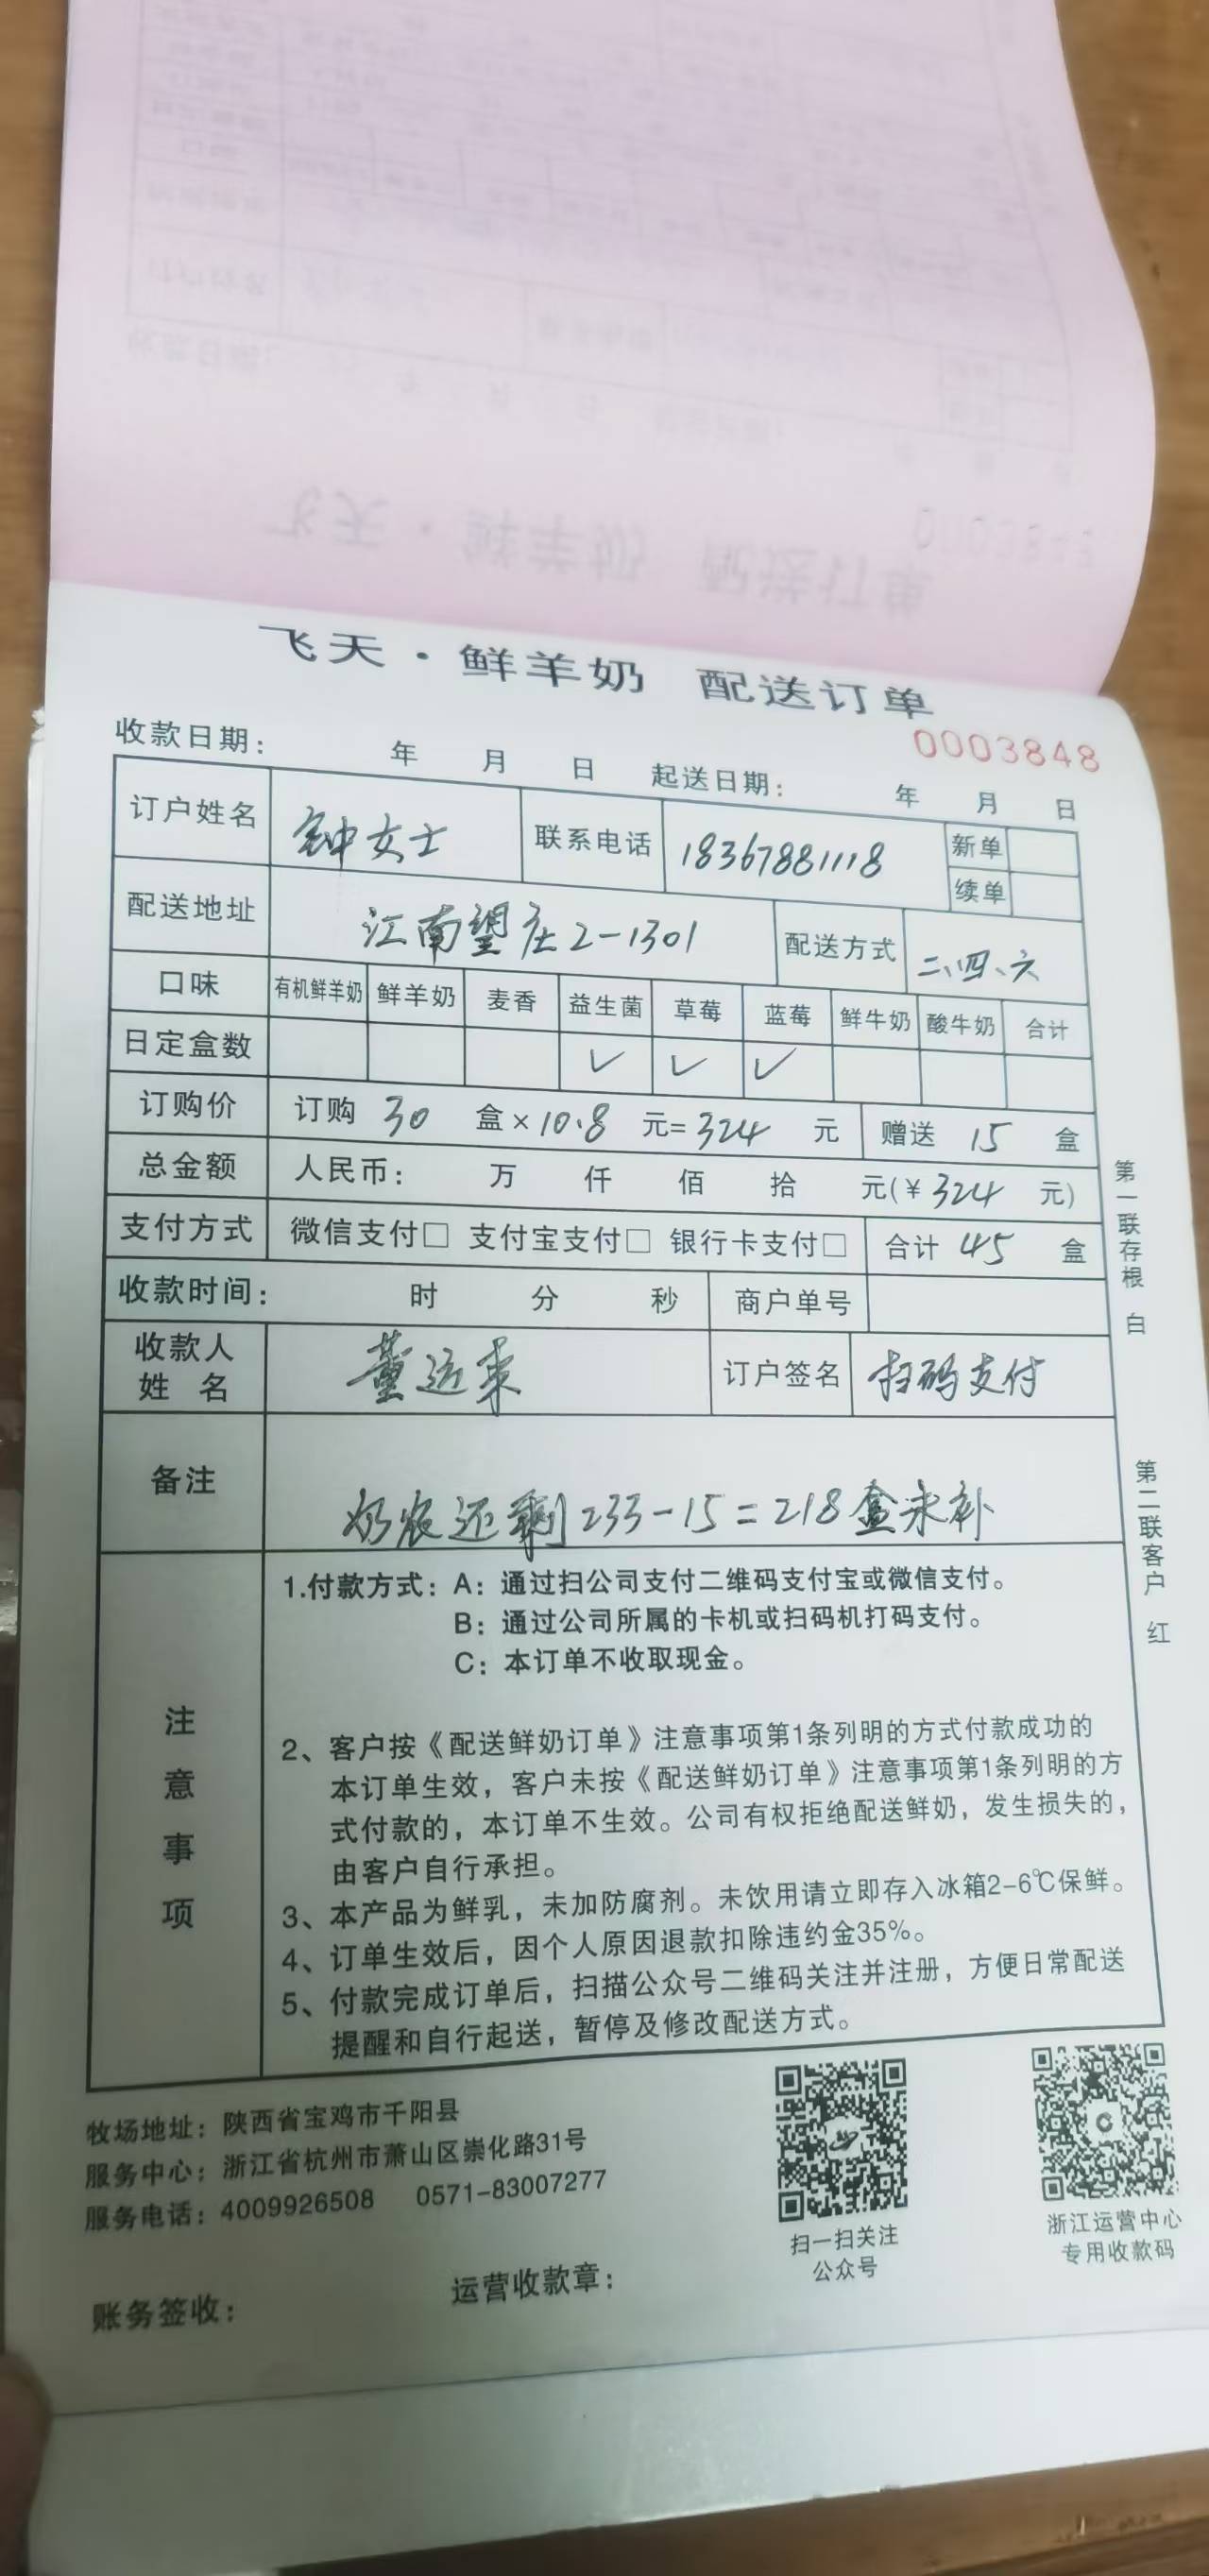 飞天·鲜羊奶 配送订单
0003848
收款日期： 年 月 日 起送日期： 年 月 日
订户姓名 钟女士 联系电话 18367881118 新单
续单
配送地址 江南望庄2-1301 配送方式 二、四、六
口味 有机鲜羊奶 鲜羊奶 麦香 益生菌 草莓 蓝莓 鲜牛奶 酸牛奶 合计
日定盒数 ✓ ✓ ✓
订购价 订购 30 盒×10.8 元=324 元 赠送 15 盒
总金额 人民币： 万 仟 佰 拾 元(¥324 元)
支付方式 微信支付□ 支付宝支付□ 银行卡支付□ 合计 45 盒
收款时间： 时 分 秒 商户单号
收款人
姓 名 董运来 订户签名 扫码支付
备注 奶农还剩233-15=218盒未补
注意事项
1.付款方式：A：通过扫公司支付二维码支付宝或微信支付。
B：通过公司所属的卡机或扫码机打码支付。
C：本订单不收取现金。
2、客户按《配送鲜奶订单》注意事项第1条列明的方式付款成功的
本订单生效，客户未按《配送鲜奶订单》注意事项第1条列明的方
式付款的，本订单不生效。公司有权拒绝配送鲜奶，发生损失的，
由客户自行承担。
3、本产品为鲜乳，未加防腐剂。未饮用请立即存入冰箱2-6℃保鲜。
4、订单生效后，因个人原因退款扣除违约金35%。
5、付款完成订单后，扫描公众号二维码关注并注册，方便日常配送
提醒和自行起送，暂停及修改配送方式。
第一联存根 白
第二联客户 红
牧场地址：陕西省宝鸡市千阳县
服务中心：浙江省杭州市萧山区崇化路31号
服务电话：4009926508 0571-83007277
扫一扫关注
公众号
浙江运营中心
专用收款码
账务签收： 运营收款章：